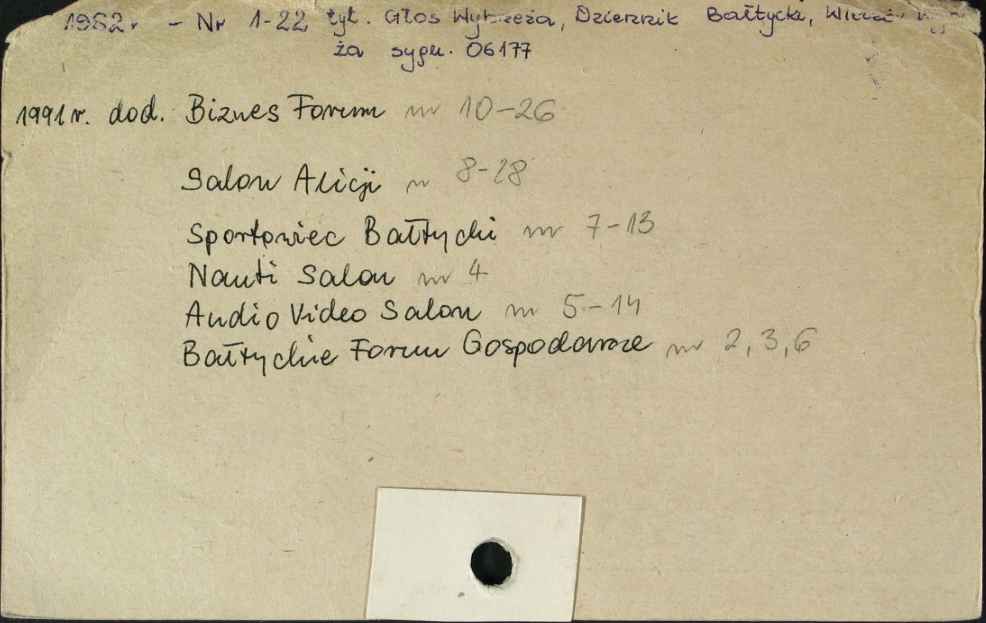 1982r. - Nr 1-22 tyt. Głos Wybrzeża, Dziennik Bałtycki,
ża sygn. 06177
1991r. dod. Biznes Forum nr 10-26
Salon Alicji nr 8-28
Sportowiec Bałtycki nr 7-13
Nauti Salon nr 4
Audio Video Salon nr 5-14
Bałtyckie Forum Gospodarcze nr 2, 3, 6